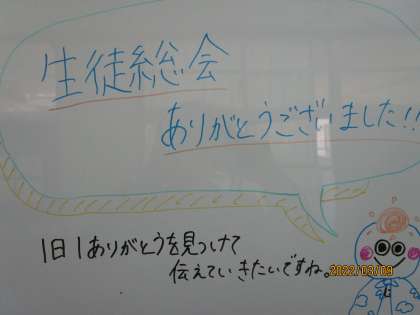 生徒総会
ありがとうございました!!
1日1ありがとうを見つけて
伝えていきたいですね。
2022/03/09